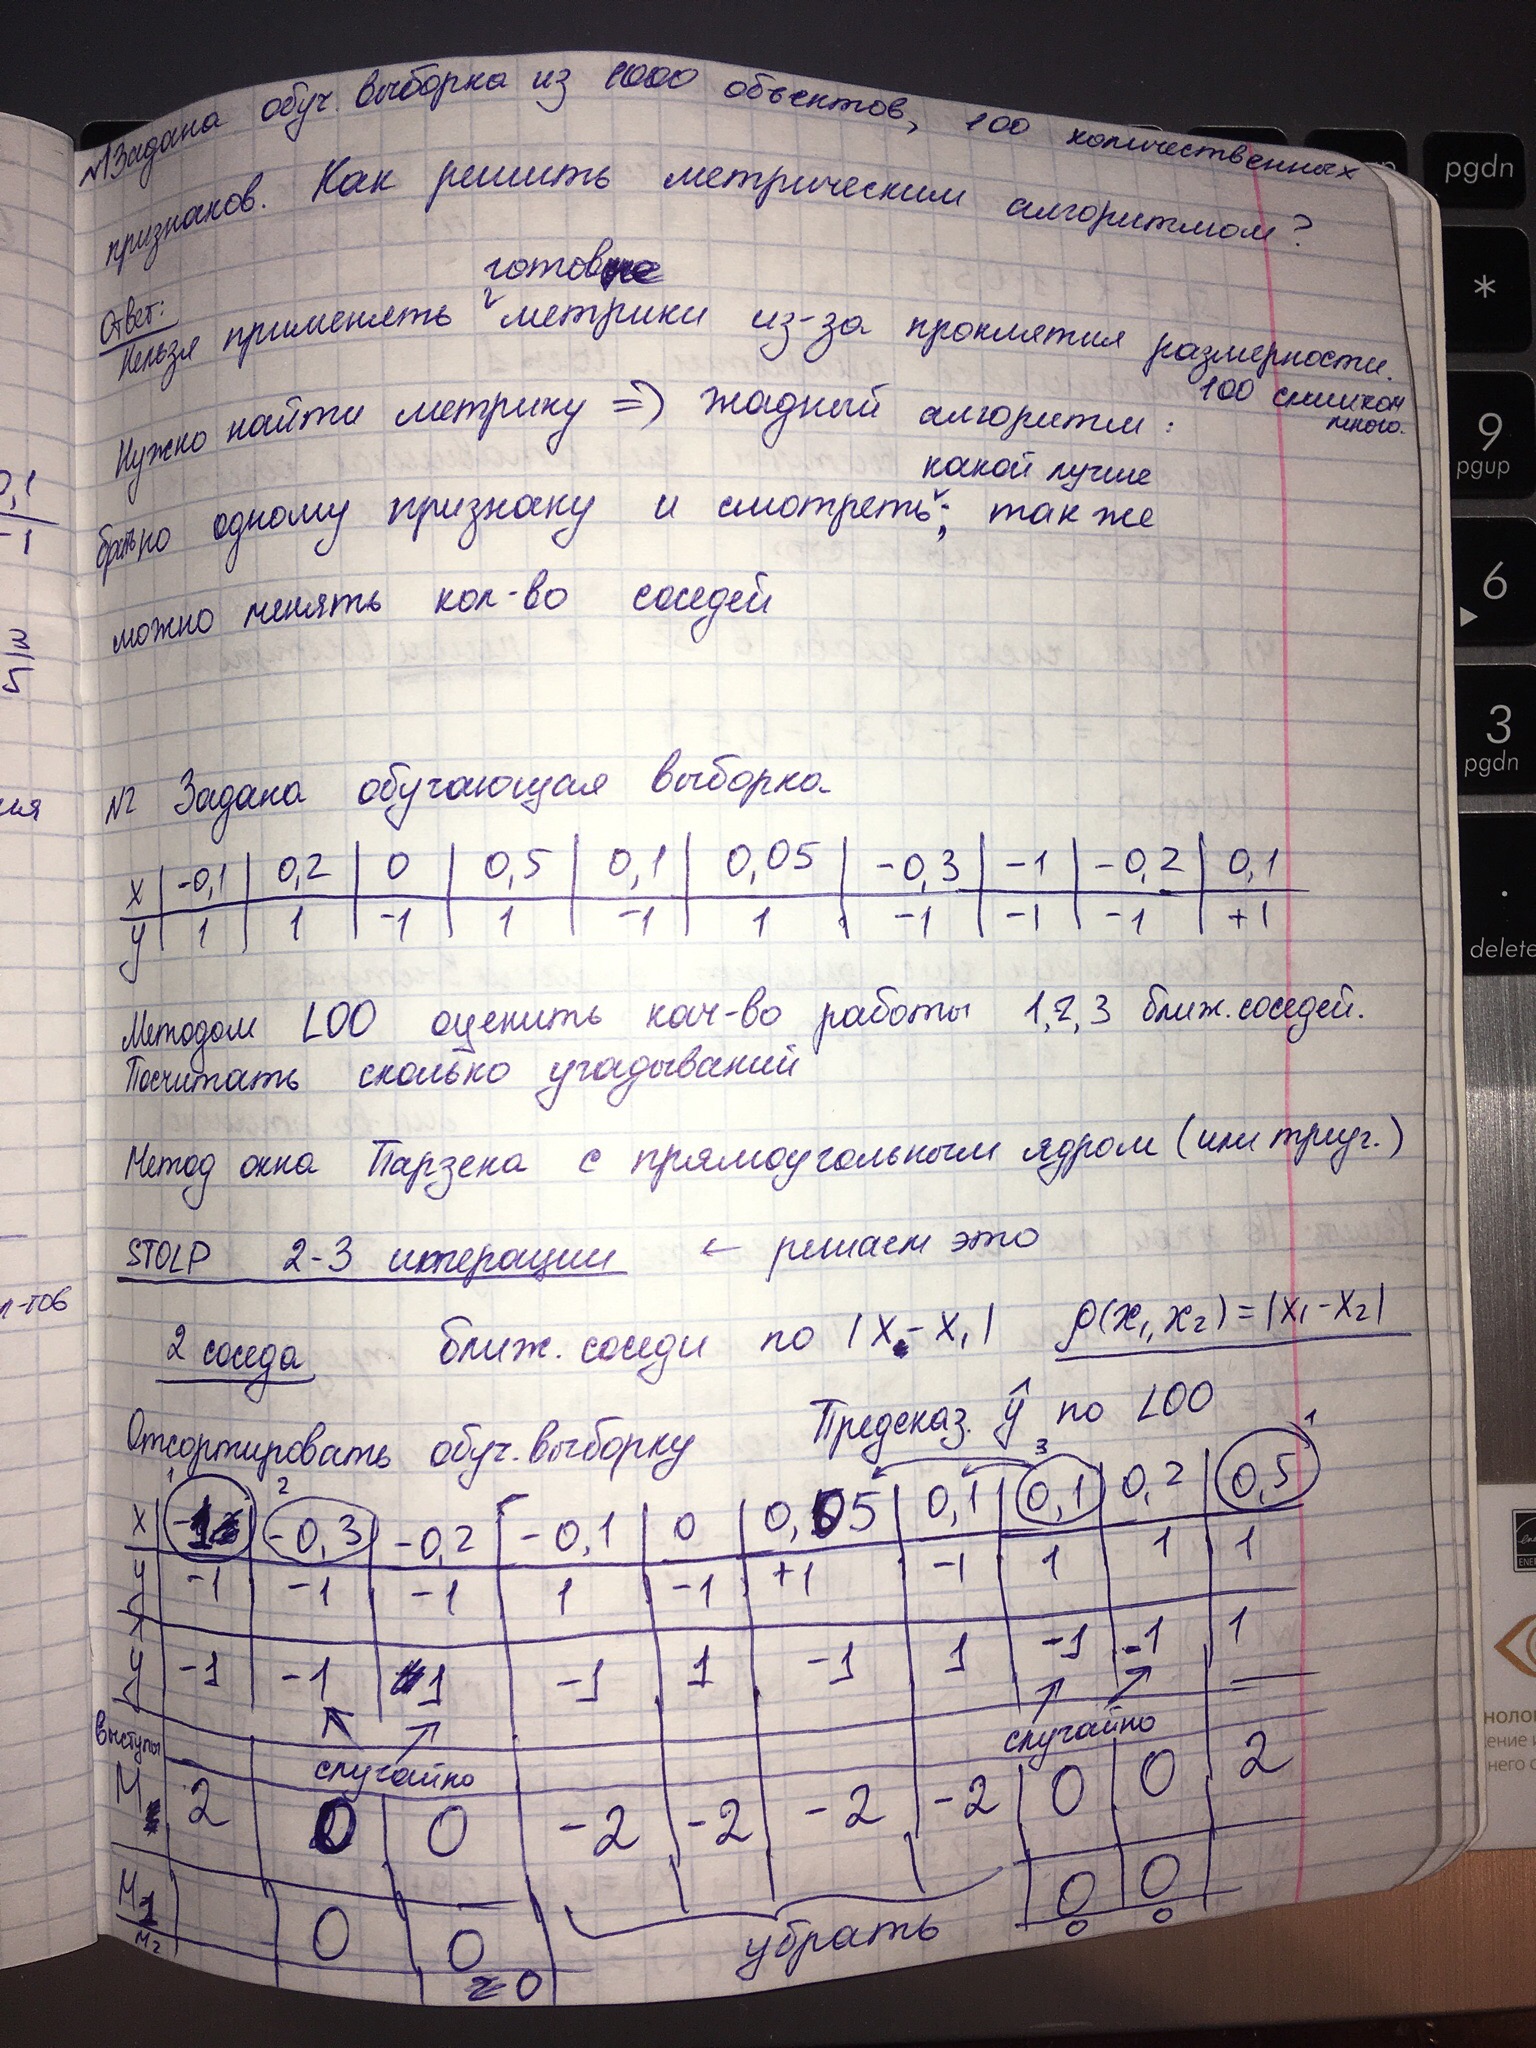 №1 Задана обуч. выборка из 1000 объектов, 100 количественных
признаков. Как решить метрическим алгоритмом?
Ответ:
готов
Нельзя применять метрики из-за проклятия размерности.
100 слишком
много.
Нужно найти метрику => жадный алгоритм:
какой лучше
брать по одному признаку и смотреть; также
можно менять кол-во соседей
№2 Задана обучающая выборка
x | -0,1 | 0,2 | 0 | 0,5 | 0,1 | 0,05 | -0,3 | -1 | -0,2 | 0,1
y | 1 | 1 | -1 | 1 | -1 | 1 | -1 | -1 | -1 | +1
Методом LOO оценить кач-во работы 1,2,3 ближ. соседей.
Посчитать сколько угадываний
Метод окна Парзена с прямоугольным ядром (или треуг.)
STOLP 2-3 итерации ← решаем это
2 соседа ближ. соседи по |x - x₁| ρ(x₁, x₂) = |x₁ - x₂|
Отсортировать обуч. выборку Предсказ. ŷ по LOO
1 2 3 1
x | -1 | -0,3 | -0,2 | -0,1 | 0 | 0,05 | 0,1 | 0,1 | 0,2 | 0,5
y | -1 | -1 | -1 | 1 | -1 | +1 | -1 | 1 | 1 | 1
ŷ | -1 | -1 | 1 | -1 | 1 | -1 | 1 | -1 | -1 | 1
случайно случайно
Выступы
M | 2 | 0 | 0 | -2 | -2 | -2 | -2 | 0 | 0 | 2
M1 | 0 | 0 | убрать | 0 | 0
M2 0 0 0
pgdn
*
9
pgup
6
3
pgdn
.
delete
0,1
-1
ия
л-тов